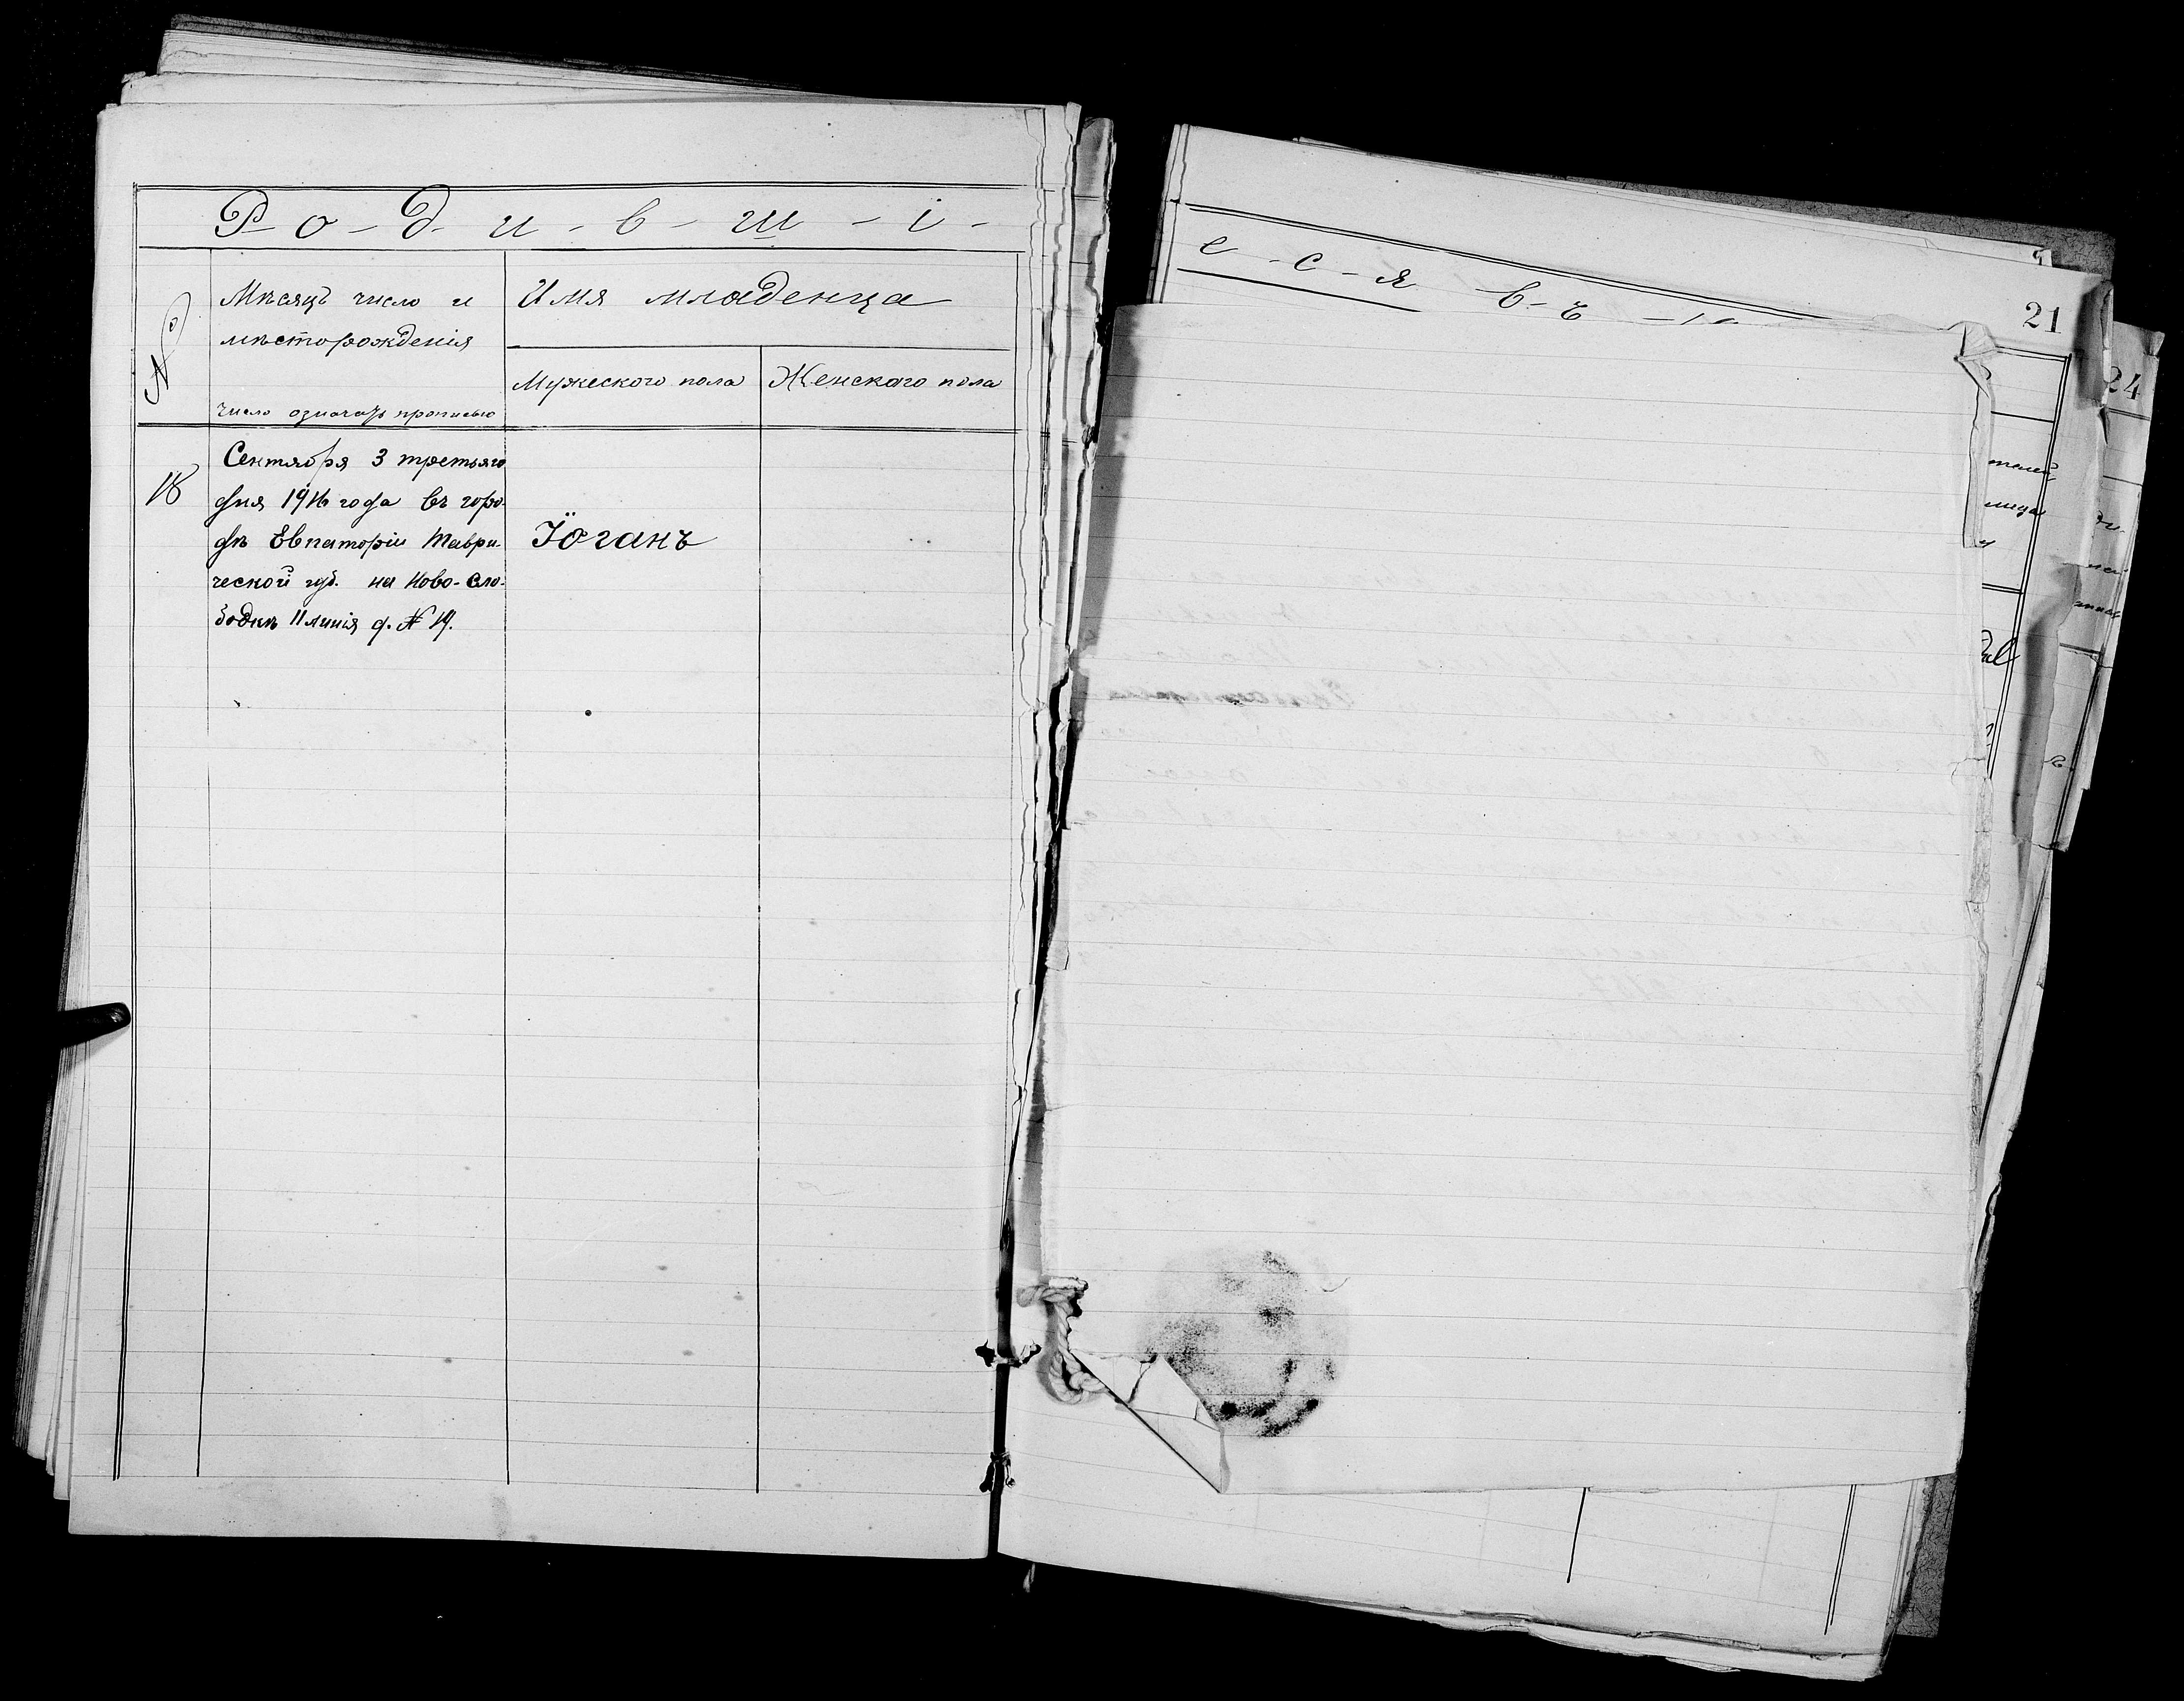 Р-о-д-и-в-ш-і-
№
Мѣсяцъ число и
мѣсторожденія
число означать прописью
Имя младенца
Мужескаго пола
Женскаго пола
18
Сентября 3 третьяго
дня 1916 года въ горо-
дѣ Евпаторіи Таври-
ческой губ. на Ново-Сло-
бодкѣ II линія д. № 19.
Іоганъ
е-с-я въ
21
24